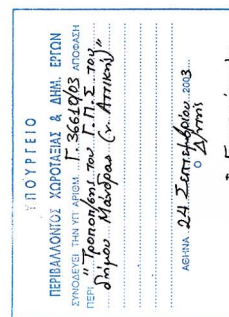 ΥΠΟΥΡΓΕΙΟ
ΠΕΡΙΒΑΛΛΟΝΤΟΣ ΧΩΡΟΤΑΞΙΑΣ & ΔΗΜ. ΕΡΓΩΝ
ΣΥΝΟΔΕΥΕΙ ΤΗΝ ΥΠ ΑΡΙΘΜ. Γ. 36610/03 ΑΠΟΦΑΣΗ
ΠΕΡΙ "Τροποποίησης του Γ.Π.Σ. του
δήμου Μάνδρας (ν. Αττικής)"
ΑΘΗΝΑ 24 Σεπτεμβρίου 2003
Ο
Δ/ντής